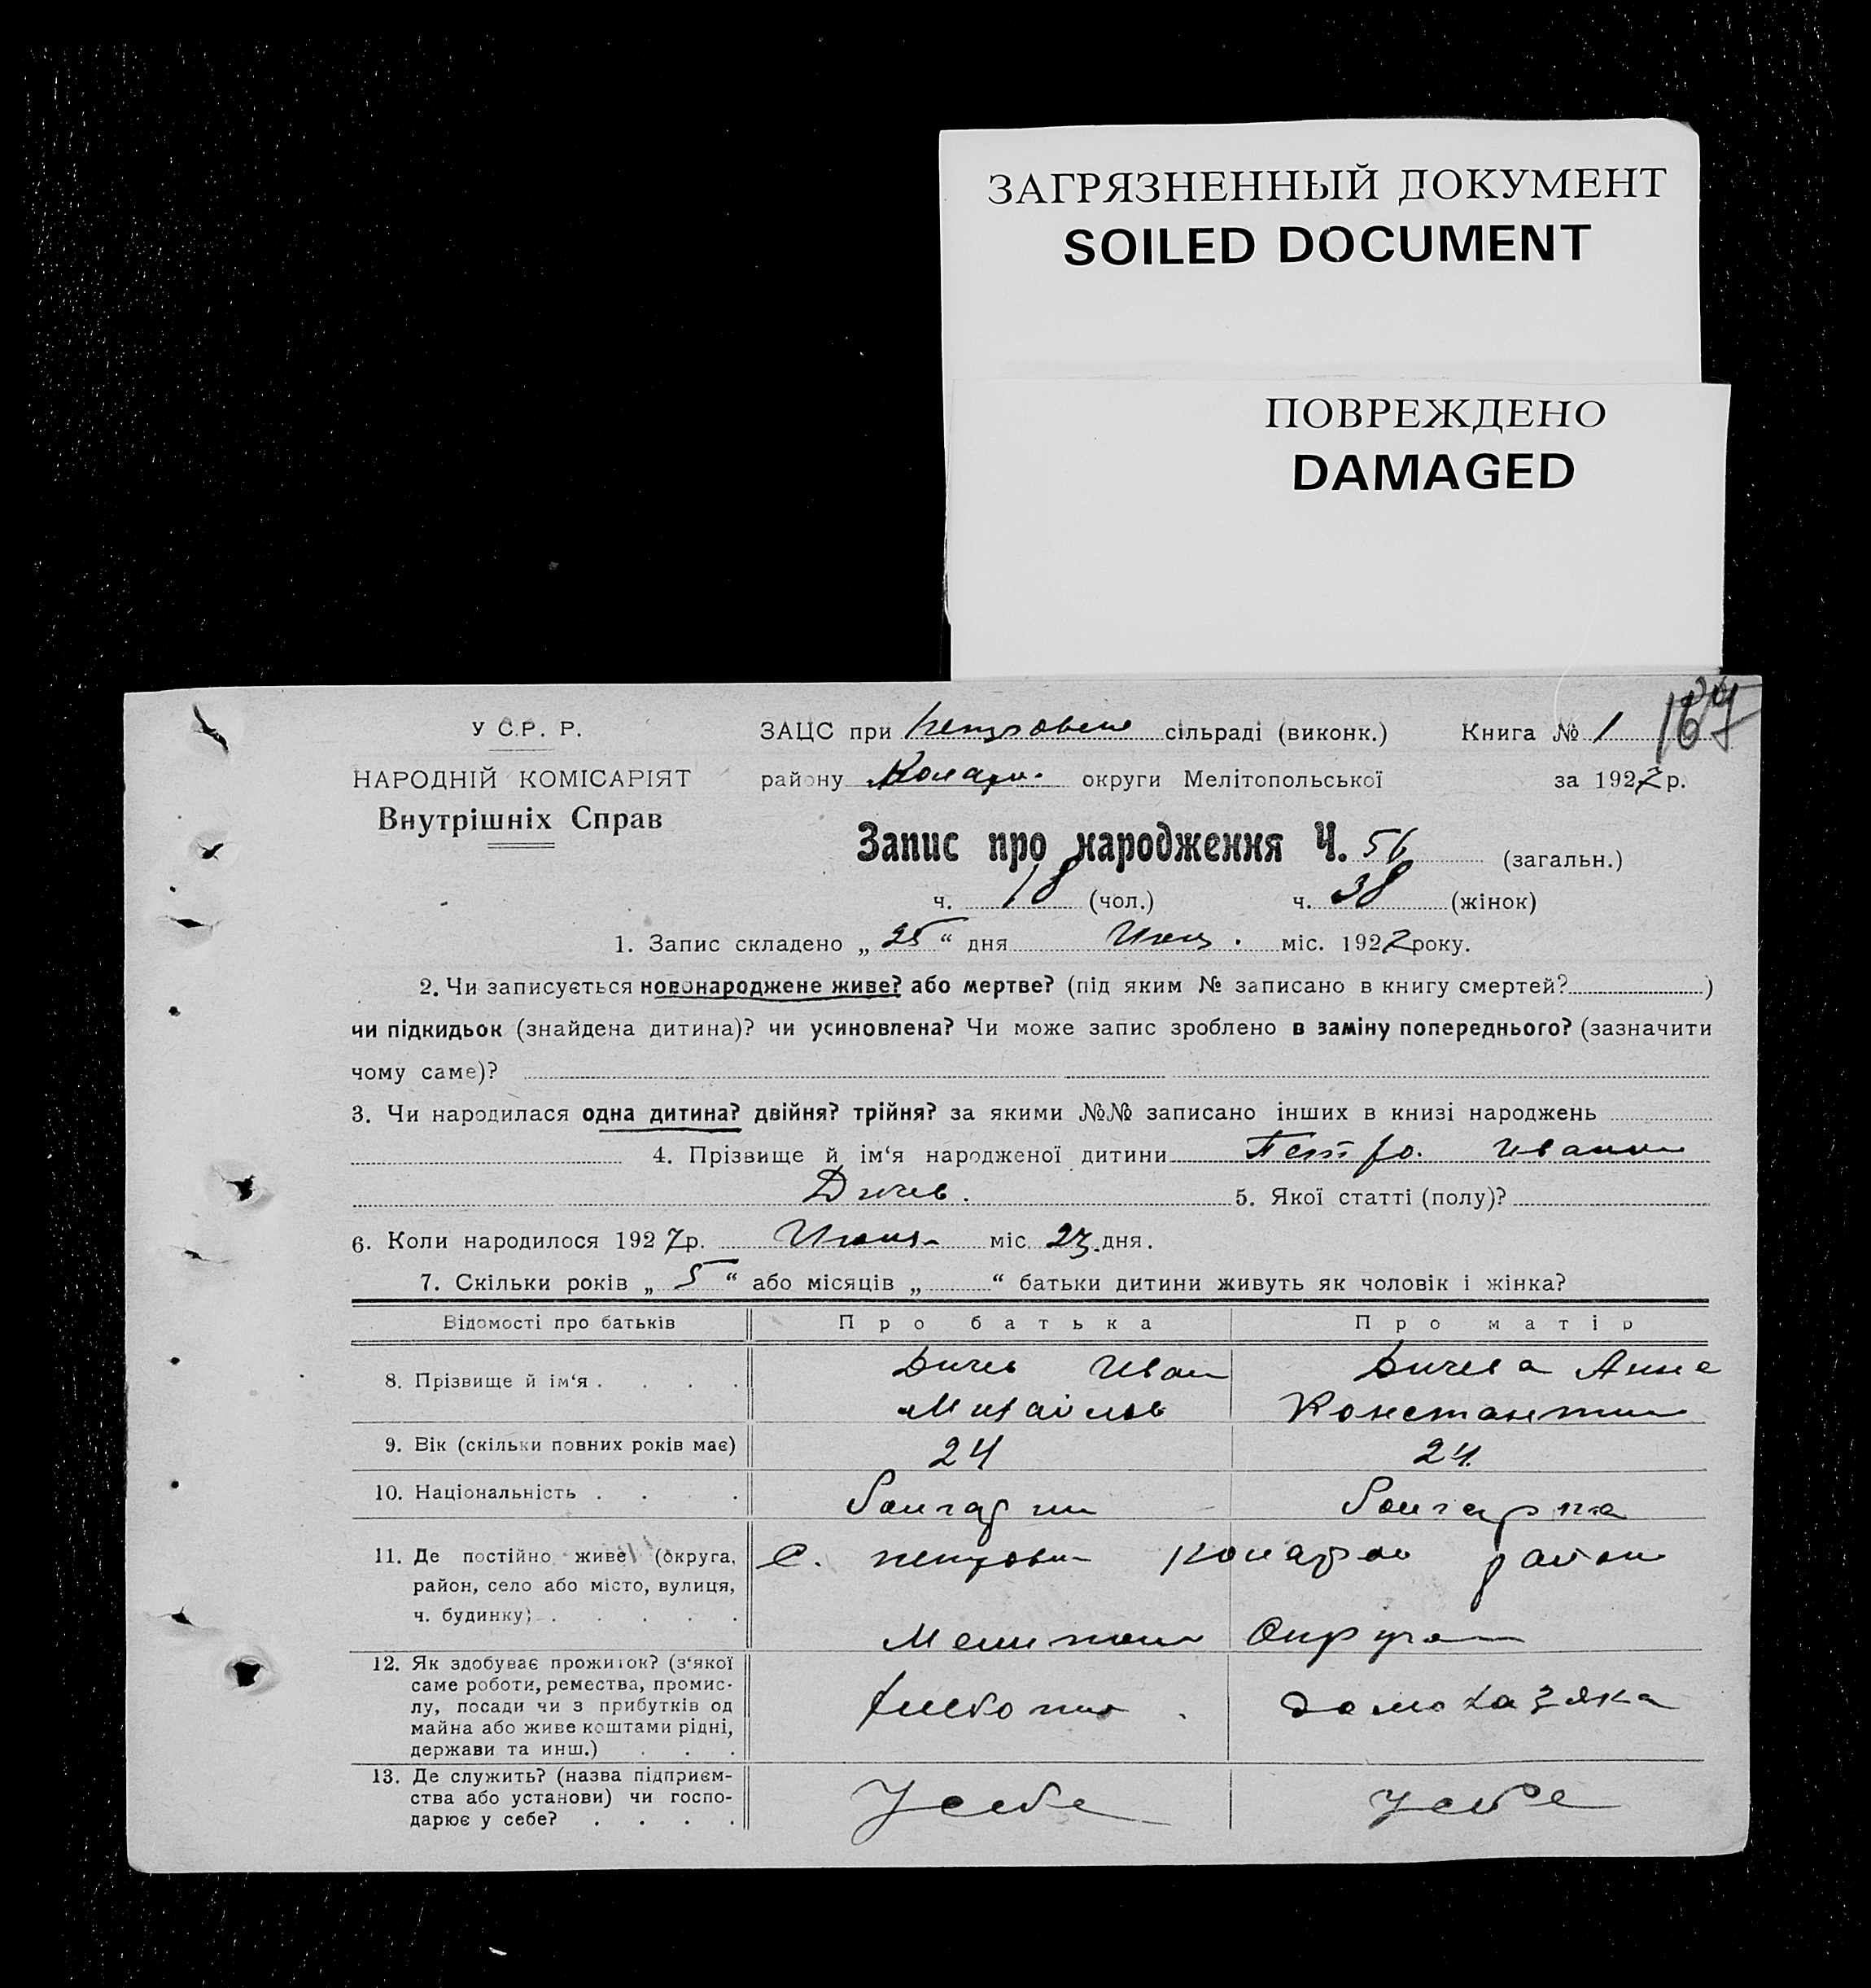 ЗАГРЯЗНЕННЫЙ ДОКУМЕНТ
SOILED DOCUMENT
ПОВРЕЖДЕНО
DAMAGED
У С.Р. Р.
НАРОДНІЙ КОМІСАРІЯТ
Внутрішніх Справ
ЗАЦС при сільраді (виконк.) Книга № 1
району округи Мелітопольської за 1927 р.
Запис про народження Ч. 56 (загальн.)
ч. 18 (чол.) ч. 38 (жінок)
1. Запис складено „ 25 “ дня міс. 1927 року.
2. Чи записується новонароджене живе? або мертве? (під яким № записано в книгу смертей? )
чи підкидьок (знайдена дитина)? чи усиновлена? Чи може запис зроблено в заміну попереднього? (зазначити
чому саме)?
3. Чи народилася одна дитина? двійня? трійня? за якими №№ записано інших в книзі народжень
4. Прізвище й ім‘я народженої дитини Петро. Иванов
Дичев.
5. Якої статті (полу)?
6. Коли народилося 1927 р. міс. 23 дня.
7. Скільки років „ 5 “ або місяців „ “ батьки дитини живуть як чоловік і жінка?
Відомості про батьків Про батька Про матір
8. Прізвище й ім‘я . . . . Дичев Иван Дичева Анна
Михайлов Константин
9. Вік (скільки повних років має) 24 24
10. Національність . . . . Болгарин Болгарка
11. Де постійно живе (округа,
район, село або місто, вулиця,
ч. будинку) . . . . .
с. район
Округа
12. Як здобуває прожиток? (з‘якої
саме роботи, ремества, промис-
лу, посади чи з прибутків од
майна або живе коштами рідні,
держави та инш.) . . .
13. Де служить? (назва підприєм-
ства або установи) чи госпо-
дарює у себе? . . . .
У себе У себе